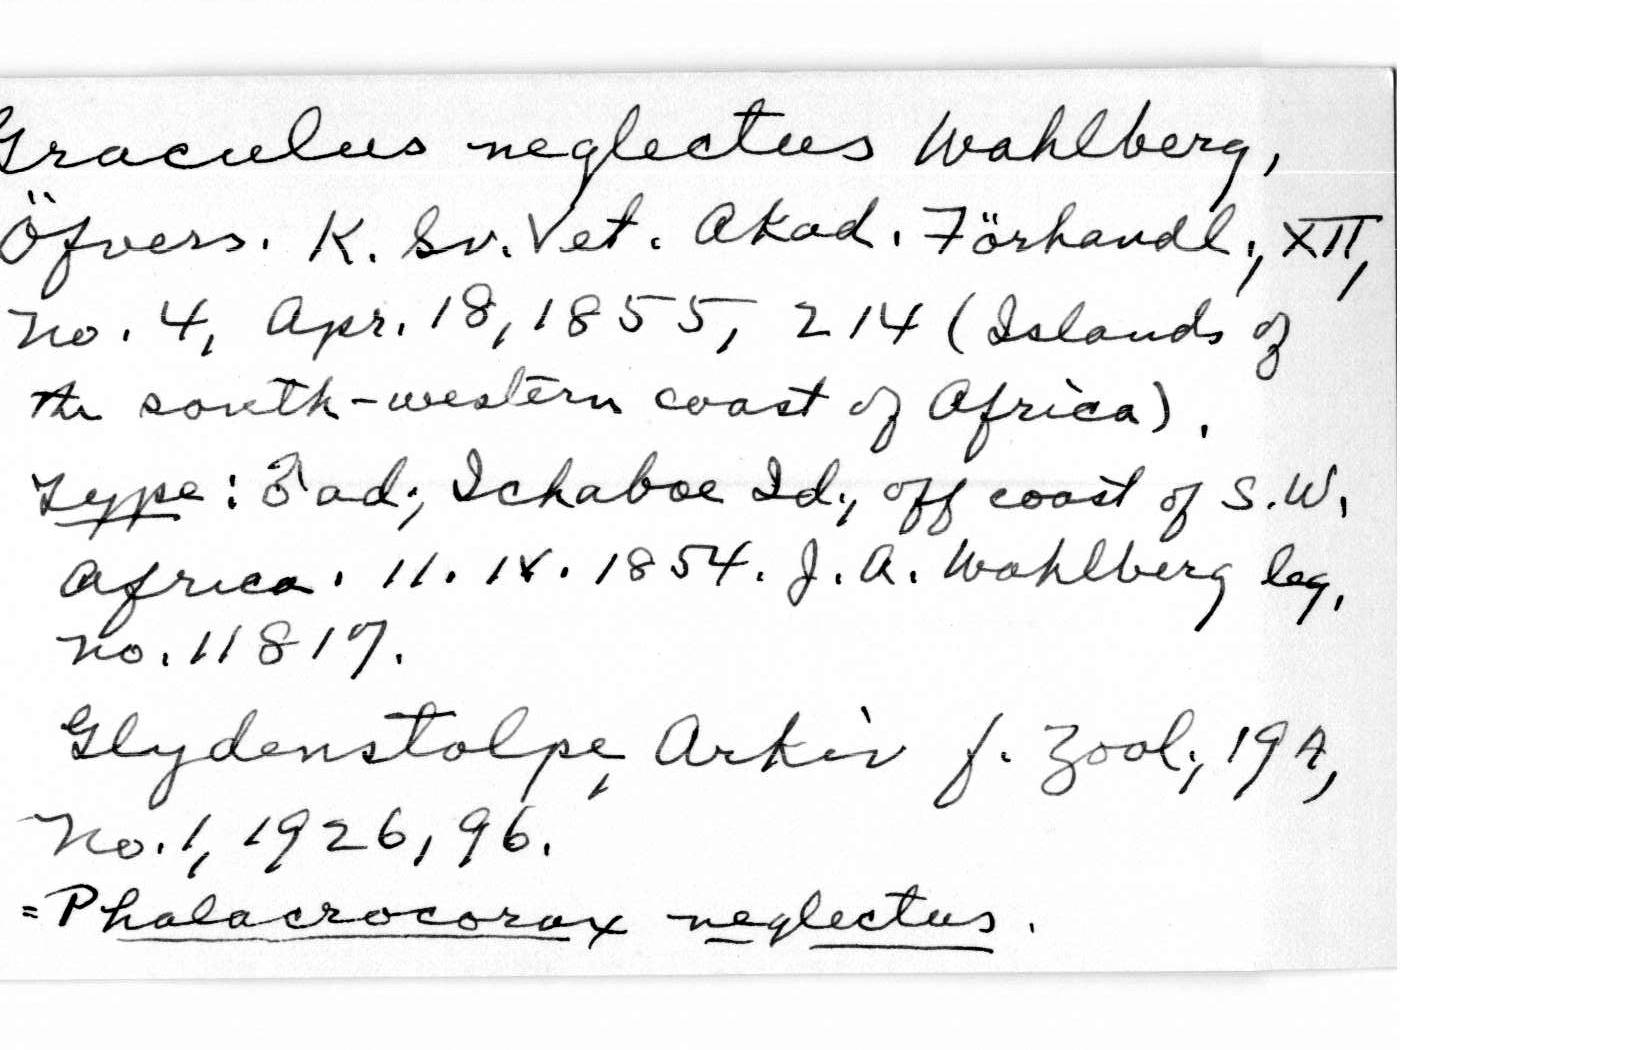 Graculus neglectus Wahlberg,
Öfvers. K. Sv. Vet. Akad. Förhandl., XII,
no. 4, Apr. 18, 1855, 214 (Islands of
the south-western coast of Africa).
Type: ♂ ad., Ichaboe Id., off coast of S.W.
Africa. 11. IV. 1854. J. A. Wahlberg leg.
no. 11817.
Glydenstolpe, Arkiv f. Zool., 19A,
No. 1, 1926, 96.
=Phalacrocorax neglectus.